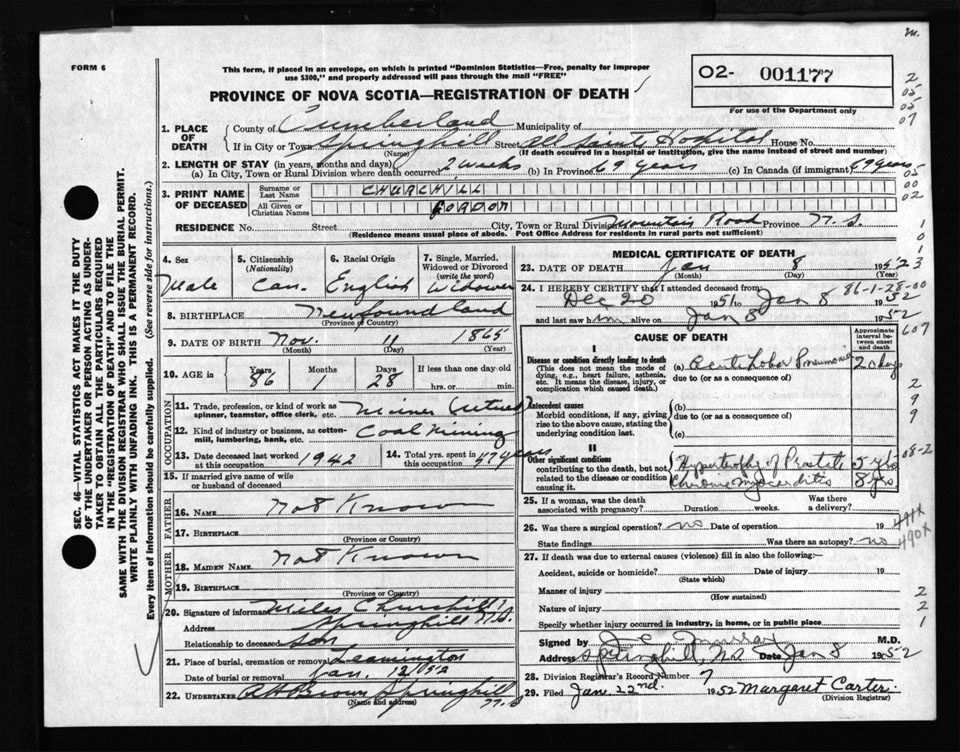 m.
FORM 6
This form, if placed in an envelope, on which is printed "Dominion Statistics—Free, penalty for improper
use $300," and properly addressed will pass through the mail "FREE"
PROVINCE OF NOVA SCOTIA—REGISTRATION OF DEATH
O2- 001177
For use of the Department only
2
05
05
07
1. PLACE OF DEATH
County of Cumberland Municipality of
If in City or Town Springhill Street All Saints Hospital House No.
(Name) (If death occurred in a hospital or institution, give the name instead of street and number)
2. LENGTH OF STAY (in years, months and days)
(a) In City, Town or Rural Division where death occurred 2 weeks (b) In Province 69 years (c) In Canada (if immigrant) 69 years
05
00
02
3. PRINT NAME OF DECEASED
Surname or Last Name CHURCHILL
All Given or Christian Names GORDON
RESIDENCE No. Street City, Town or Rural Division Mountain Road Province N.S.
(Residence means usual place of abode. Post Office Address for residents in rural parts not sufficient)
1
0
1
4. Sex
Male
5. Citizenship
(Nationality)
Can.
6. Racial Origin
English
7. Single, Married,
Widowed or Divorced
(write the word)
Widower
8. BIRTHPLACE Newfoundland
(Province or Country)
9. DATE OF BIRTH Nov. 11 1865
(Month) (Day) (Year)
10. AGE in
Years Months Days If less than one day old
86 1 28 hrs. or min.
OCCUPATION
11. Trade, profession, or kind of work as
spinner, teamster, office clerk, etc. Miner retired
12. Kind of industry or business, as cotton-
mill, lumbering, bank, etc. Coal Mining
13. Date deceased last worked
at this occupation 1942
14. Total yrs. spent in
this occupation 57 years
15. If married give name of wife
or husband of deceased
FATHER
16. NAME Not Known
17. BIRTHPLACE
(Province or Country)
MOTHER
18. MAIDEN NAME Not Known
19. BIRTHPLACE
(Province or Country)
20. Signature of informant Miles Churchill
Address Springhill N.S.
Relationship to deceased son
21. Place of burial, cremation or removal Leamington
Date of burial or removal Jan. 12/1952
22. UNDERTAKER A H Brown Springhill
(Name and address) N.S
MEDICAL CERTIFICATE OF DEATH
23. DATE OF DEATH Jan 8 1952 3
(Month) (Day) (Year)
24. I HEREBY CERTIFY that I attended deceased from: 86-1-28-00
Dec 20 1951 to Jan 8 1952
and last saw him alive on Jan 8 1952
607
CAUSE OF DEATH
Approximate
interval be-
tween onset
and death
I
Disease or condition directly leading to death
(This does not mean the mode of
dying, e.g., heart failure, asthenia,
etc. It means the disease, injury, or
complication which caused death.)
(a) Acute Lobar Pneumonia 2 days
due to (or as a consequence of)
2
9
9
Antecedent causes
Morbid conditions, if any, giving
rise to the above cause, stating the
underlying condition last.
(b)
due to (or as a consequence of)
(c)
II
Other significant conditions
contributing to the death, but not
related to the disease or condition
causing it.
Hypertrophy of Prostate 5 yrs 08-2
Chronic Myocarditis 8 yrs
25. If a woman, was the death
associated with pregnancy? Duration weeks. Was there
a delivery?
26. Was there a surgical operation? no Date of operation 19
State findings Was there an autopsy? no
490X
27. If death was due to external causes (violence) fill in also the following:—
Accident, suicide or homicide? Date of injury 19
(State which)
Manner of injury
(How sustained)
Nature of injury
2
2
Specify whether injury occurred in industry, in home, or in public place
1
Signed by J. C. Murray M.D.
Address Springhill, N.S. Date Jan 8 1952
28. Division Registrar's Record Number 7
29. Filed Jan. 22nd. 1952 Margaret Carter.
(Division Registrar)
SEC. 46—VITAL STATISTICS ACT MAKES IT THE DUTY
OF THE UNDERTAKER OR PERSON ACTING AS UNDER-
TAKER TO OBTAIN ALL THE PARTICULARS REQUIRED
IN THE "REGISTRATION OF DEATH" AND TO FILE THE
SAME WITH THE DIVISION REGISTRAR WHO SHALL ISSUE THE BURIAL PERMIT.
WRITE PLAINLY WITH UNFADING INK. THIS IS A PERMANENT RECORD.
Every item of information should be carefully supplied. (See reverse side for instructions.)